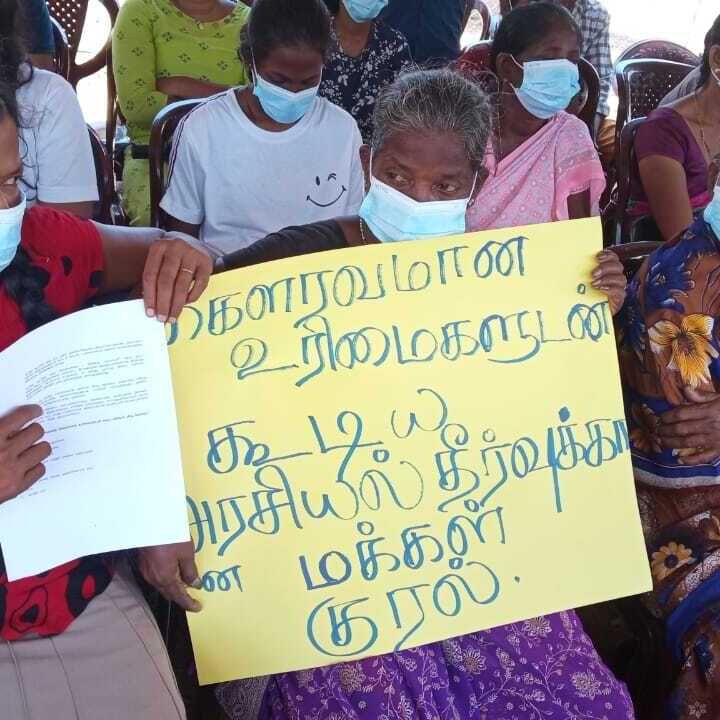 கௌரவமான
உரிமைகளுடன்
கூடிய
அரசியல் தீர்வுக்கா
ன மக்கள்
குரல்.